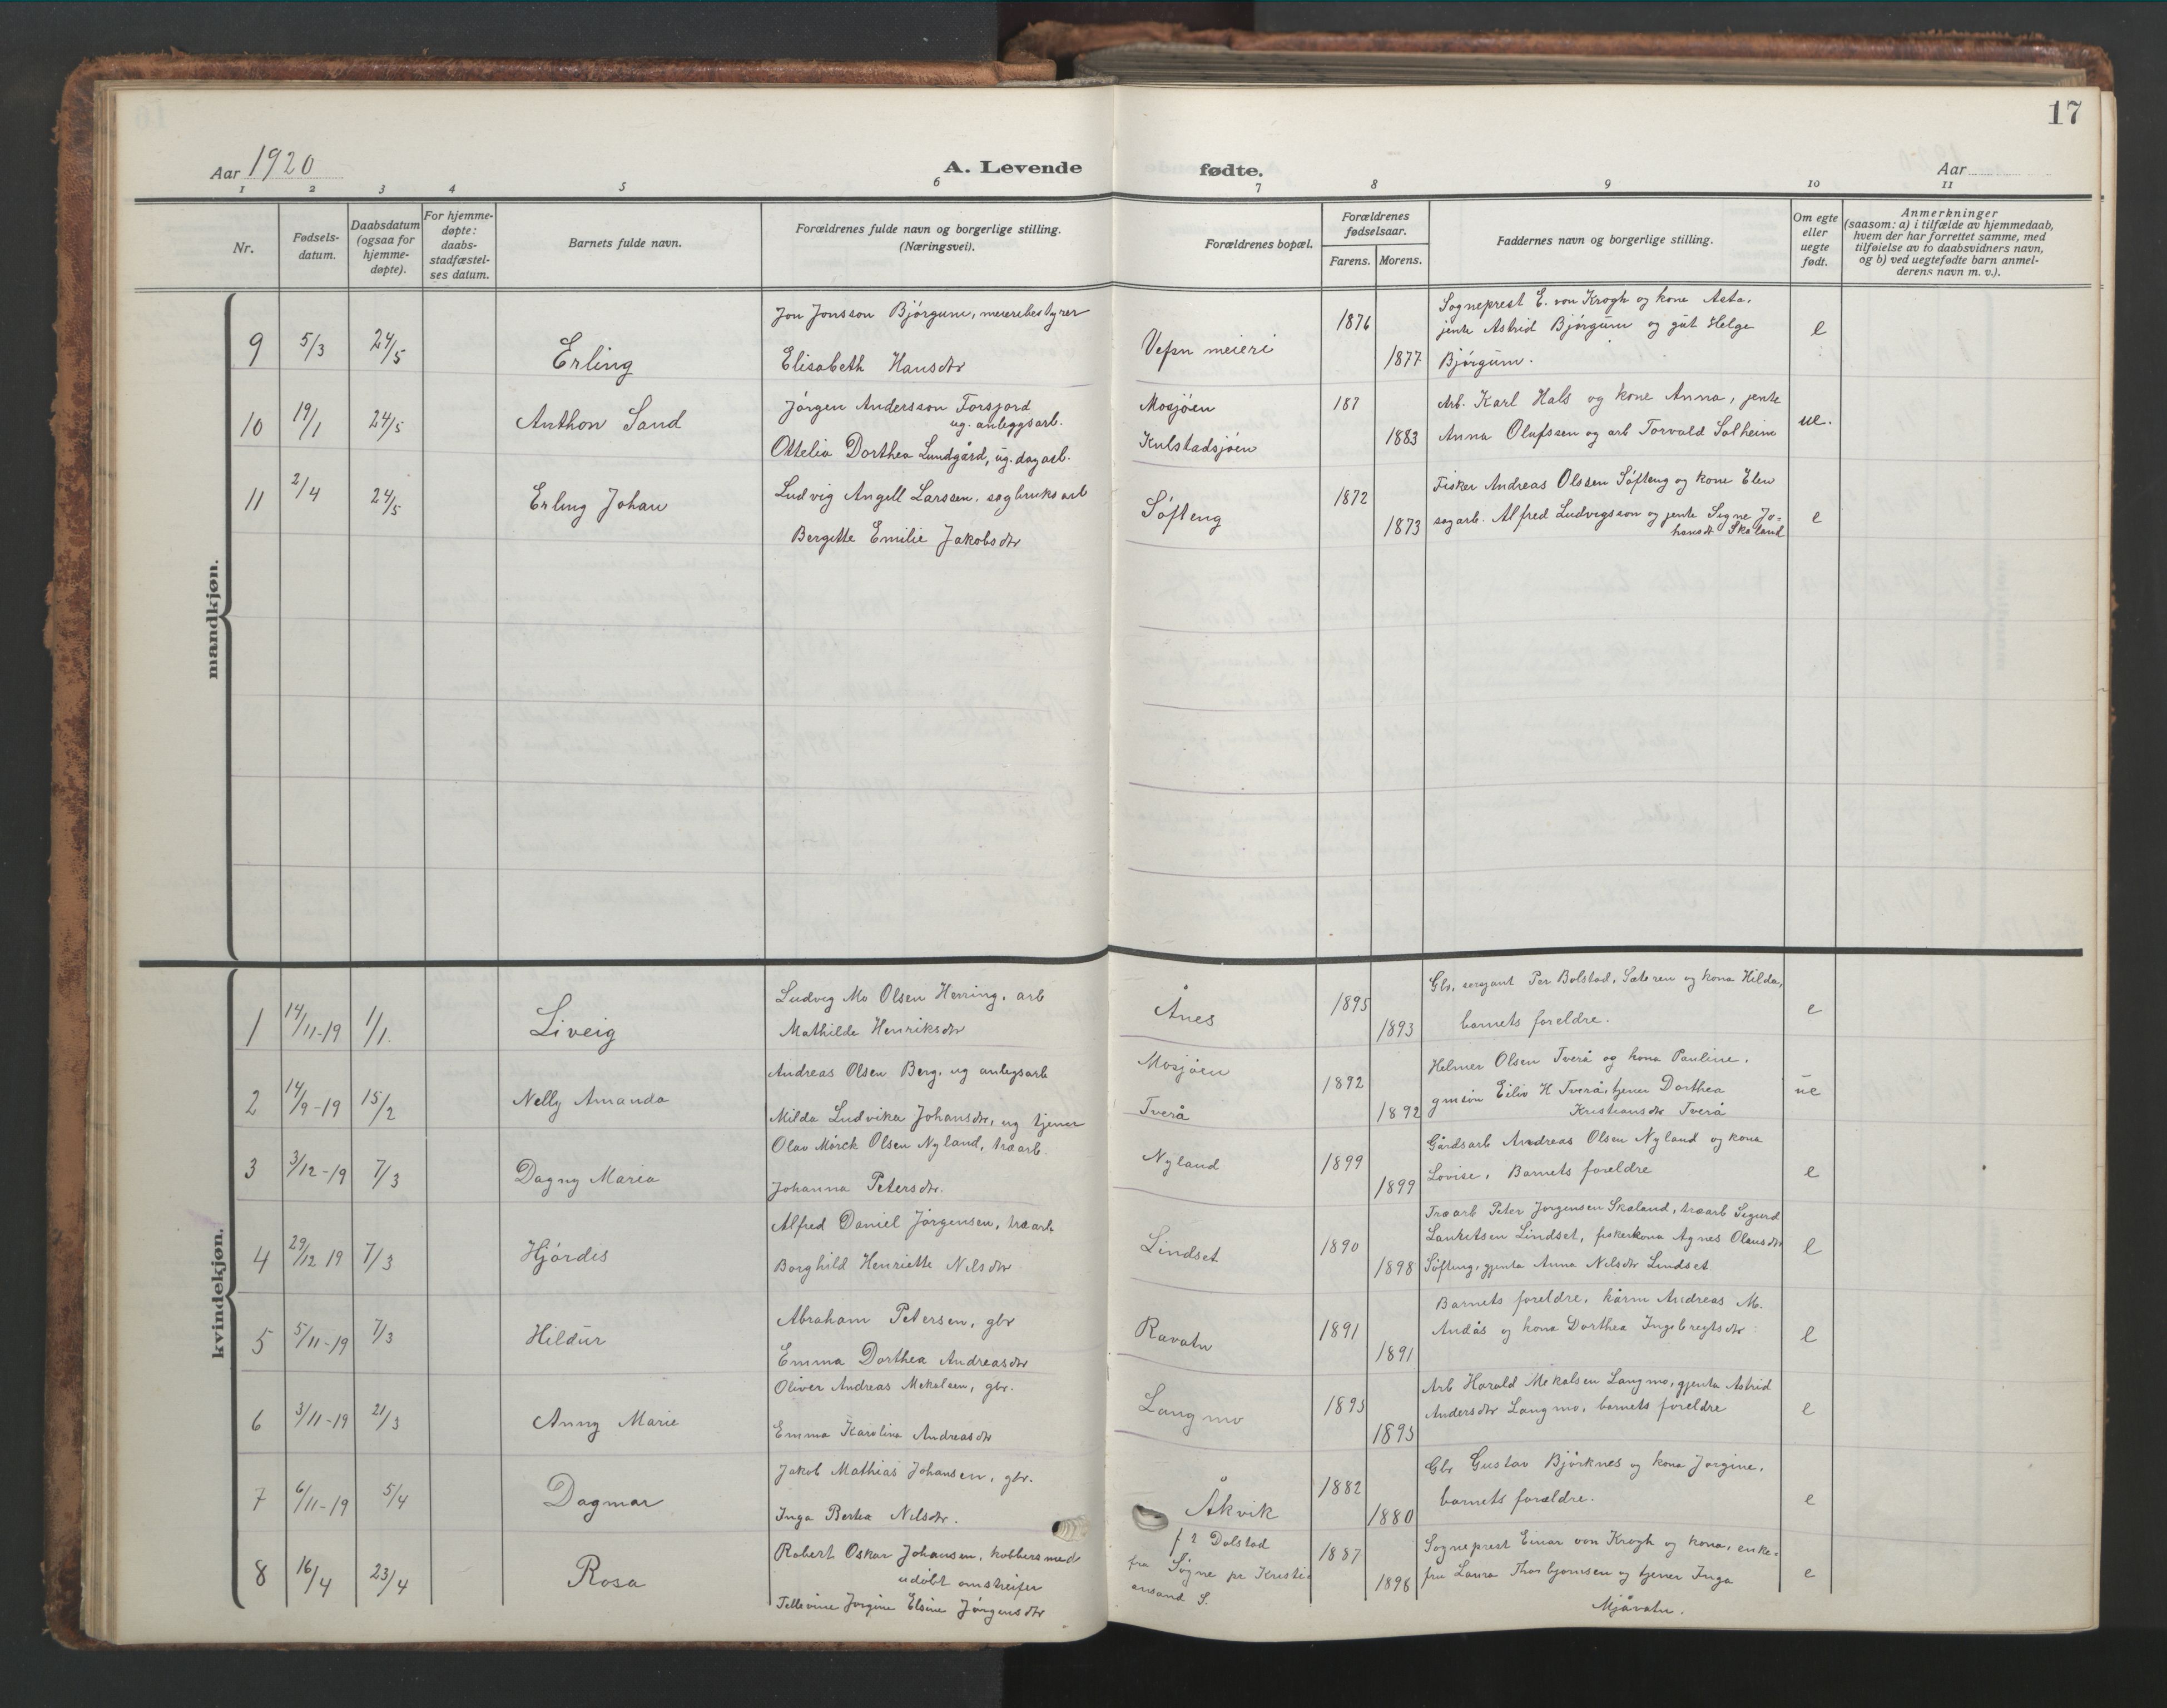 17
Aar 1920
A. Levende fødte.
Aar
1 2 3 4 5 6 7 8 9 10 11
Nr.
Fødsels-
datum.
Daabsdatum
(ogsaa for
hjemme-
døpte).
For hjemme-
døpte:
daabs-
stadfæstel-
ses datum.
Barnets fulde navn.
Forældrenes fulde navn og borgerlige stilling.
(Næringsvei).
Forældrenes bopæl.
Forældrenes
fødselsaar.
Farens. Morens.
Faddernes navn og borgerlige stilling.
Om egte
eller
uegte
født.
Anmerkninger
(saasom: a) i tilfælde av hjemmedaab,
hvem der har forrettet samme, med
tilføielse av to daabsvidners navn,
og b) ved uegtefødte barn anmel-
derens navn m. v.).
mandkjøn.
9 5/3 24/5 Erling
Jon Jonsson Bjórgum, meieribestyrer
Elisabeth Hansdtr
Vefsn meieri
1876
1877
Sogneprest E. von Krogh og kone Asta,
jente Astrid Bjórgum og gut Helge
Bjórgum.
e
10 19/1 24/5 Anthon Sand
Jórgen Andersson Forsjord
ug. anleggsarb.
Ottelia Dorthea Lundgård, ug. dagarb.
Mosjóen
Kulstadsjóen
187
1883
Arb. Karl Hals og kone Anna, jente
Anna Olufssen og arb Torvald Solheim
ue.
11 2/4 24/5 Erling Johan
Ludvig Angell Larssen, sagbruksarb
Bergitte Emilie Jakobsdtr
Sófteng
1872
1873
Fisker Andreas Olssen Sófteng og kone Elen
sagarb. Alfred Ludvigsson og jente Signe Jo-
hansdt Skaland
e
kvindekjøn.
1 14/11-19 1/1. Liveig
Ludvig Mo Olsen Herring, arb
Mathilde Henriksdtr
Ånes
1895
1893
Gbr, sersjant Per Bolstad, Sæteren og kona Hilda,
barnets foreldre.
e
2 14/9-19 15/2 Nelly Amanda
Andreas Olsen Berg, ug anlegsarb
Milda Ludvika Johansdtr, ug tjener
Mosjóen
Tverå
1892
1892
Helmer Olsen Tverå og kona Pauline,
gmsón Eiliv H Tverå, tjener Dorthea
Kristiansdtr Tverå
ue
3 3/12-19 7/3 Dagny Maria
Olav Mórck Olsen Nyland, træarb.
Johanna Petersdtr.
Nyland
1899
1899
Gårdsarb Andreas Olsen Nyland og kona
Lovise, Barnets foreldre
e
4 29/12 19 7/3 Hjórdis
Alfred Daniel Jórgensen, træarb
Borghild Henriette Nilsdtr
Lindset
1890
1898
Træarb Peter Jorgensen Skaland, træarb Sigurd
Lauritsen Lindset, fiskerkona Agnes Olausdtr
Sófteng, gjenta Anna Nilsdtr Lindset
e
5 5/11-19 7/3 Hildur
Abraham Petersen, gbr
Emma Dorthea Andreasdtr
Ravatn
1891
1891
Barnets foreldre, kårm Andreas M.
Andås og kona Dorthea Ingebregtsdtr
e
6 3/11-19 21/3 Anny Marie
Oliver Andreas Mekalsen, gbr.
Emma Karolina Andreasdtr
Langmo
1893
1895
Arb Harald Mekalsen Langmo, gjenta Astrid
Andersdtr Langmo, barnets foreldre
e
7 6/11-19 5/4 Dagmar
Jakob Mathias Johansen, gbr.
Inga Bertea Nilsdtr.
Åkvik
1882
1880
Gbr Gustav Bjórknes og kona Jorgine,
barnets forældre.
e
8 16/4 23/4 Rosa
Robert Oskar Johansen, kobbersmed
udóbt omstreifer
Tellevine Jorgine Elsine Jórgensdtr
f i Dolstad
fra Sógne pr Kristi
ansand S.
1887
1896
Sogneprest Einar von Krogh og kona, enke-
fru Laura Thorbjornsen og tjener Inga
Mjåvatn.
e